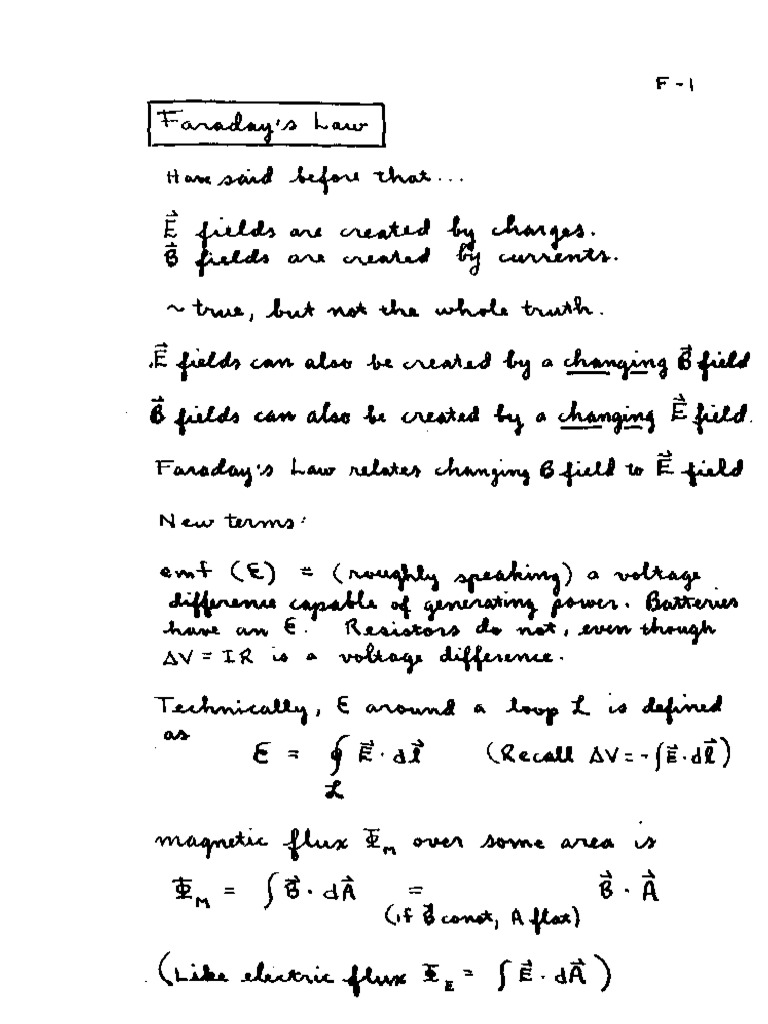 F-1
Faraday's Law
Have said before that...
E⃗ fields are created by charges.
B⃗ fields are created by currents.
~ true, but not the whole truth.
E⃗ fields can also be created by a changing B⃗ field
B⃗ fields can also be created by a changing E⃗ field.
Faraday's Law relates changing B field to E⃗ field
New terms:
emf (ℰ) = (roughly speaking) a voltage
difference capable of generating power. Batteries
have an ℰ. Resistors do not, even though
ΔV = IR is a voltage difference.
Technically, ℰ around a loop L is defined
as
ℰ = ∮_L E⃗ · dl⃗ (Recall ΔV = -∫E⃗·dl⃗)
magnetic flux Φ_M over some area is
Φ_M = ∫B⃗ · dA⃗ = B⃗ · A⃗
(if B⃗ const, A flat)
(Like electric flux Φ_E = ∫E⃗ · dA⃗)